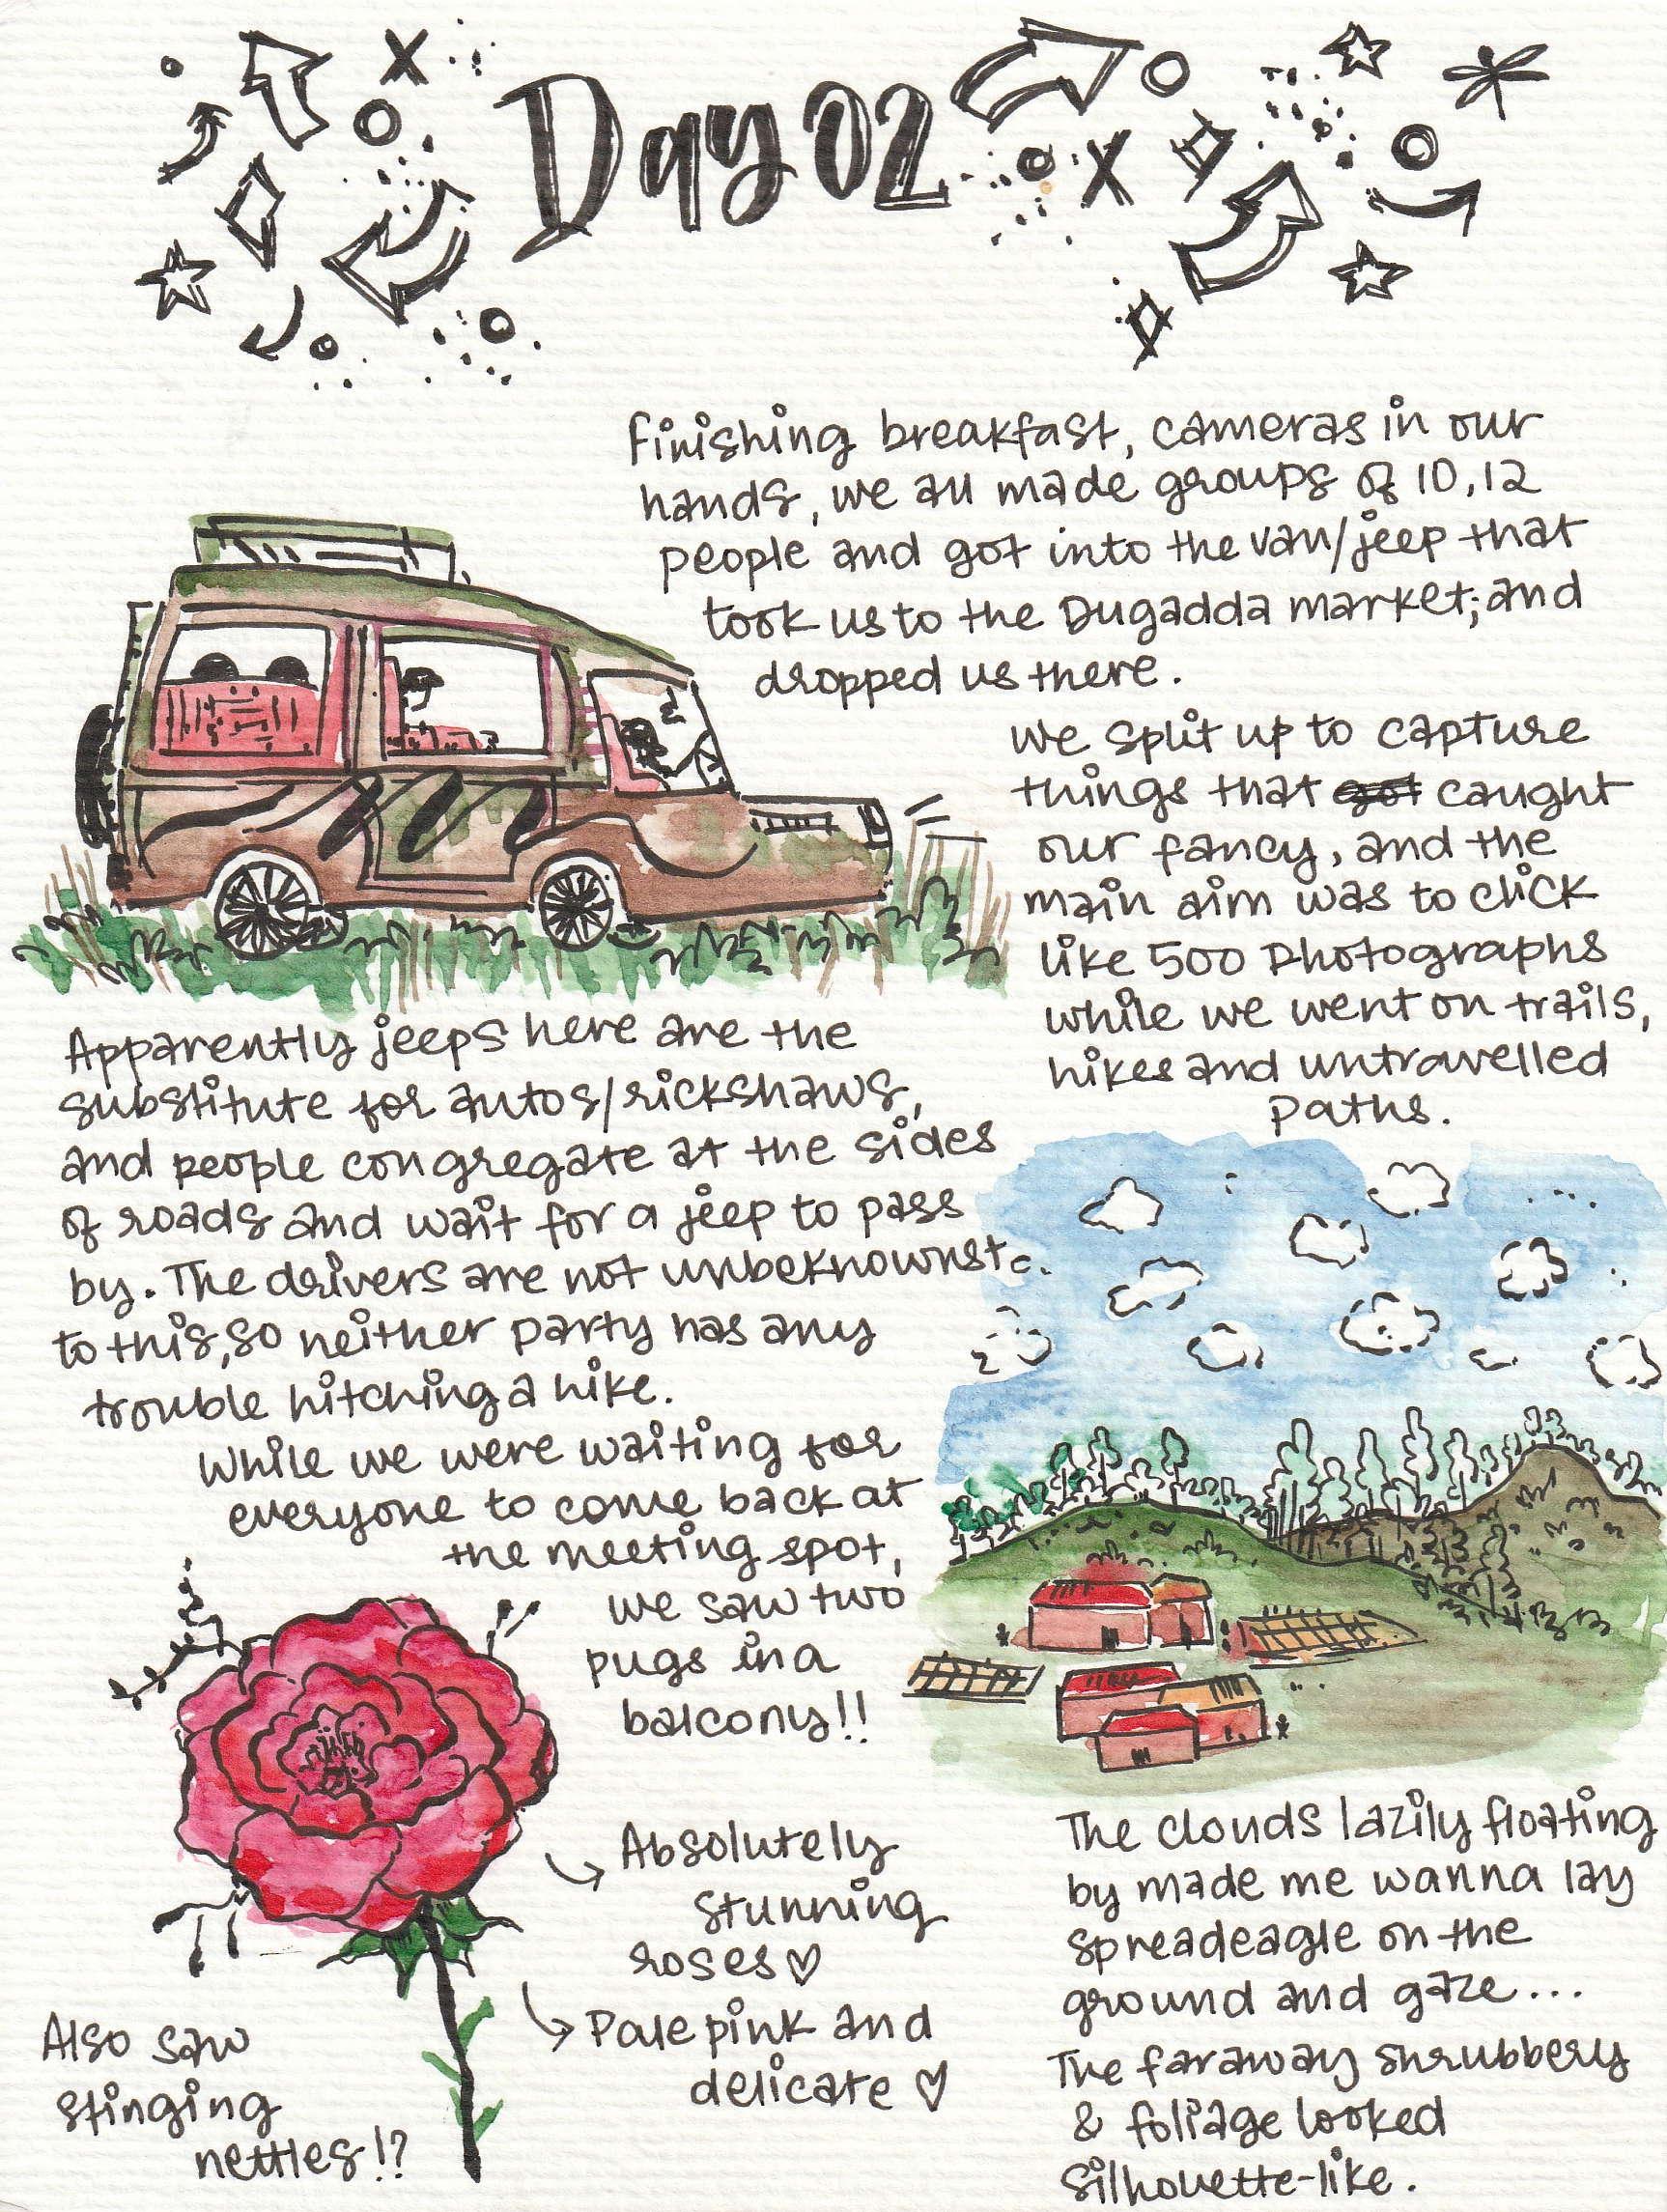 Day 02
Finishing breakfast, cameras in our
hands, we all made groups of 10,12
people and got into the van/jeep that
took us to the Dugadda market; and
dropped us there.
We split up to capture
things that got caught
our fancy, and the
main aim was to click
like 500 photographs
while we went on trails,
hikes and untravelled
paths.
Apparently jeeps here are the
substitute for autos/rickshaws,
and people congregate at the sides
of roads and wait for a jeep to pass
by. The drivers are not unbeknownst
to this, so neither party has any
trouble hitching a hike.
While we were waiting for
everyone to come back at
the meeting spot,
we saw two
pugs in a
balcony!!
Absolutely
stunning
roses♡
Pale pink and
delicate ♡
Also saw
stinging
nettles!?
The clouds lazily floating
by made me wanna lay
spreadeagle on the
ground and gaze...
The faraway shrubbery
& foliage looked
silhouette-like.